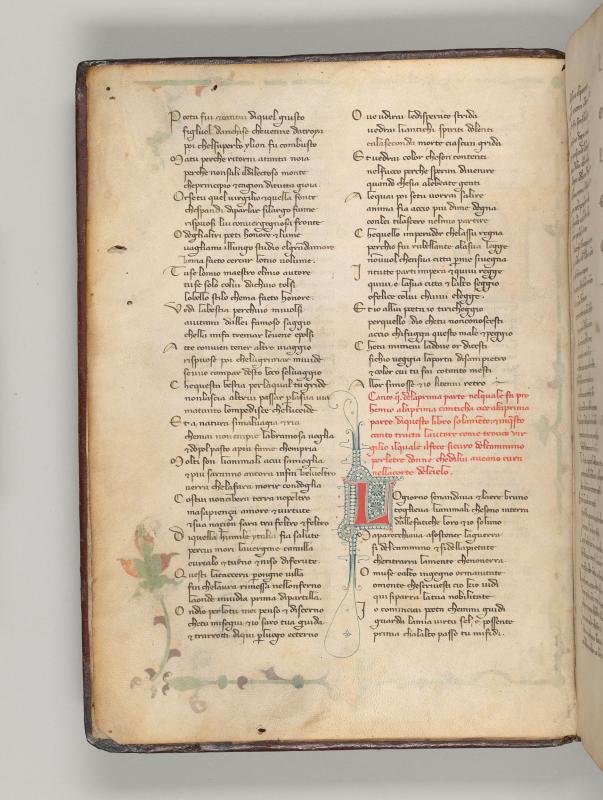 Poeta fui & cantai diquel giusto
figliuol danchise cheuenne datroya
poi chelsuperbo ylion fu combusto
Ma tu perche ritorni atanta noia
perche nonsali ildilectoso monte
cheprincipio & cagion dituta gioia
Orsetu quel uirgilio & quella fonte
chespandi diparlar silargo fiume
rispuosi lui conuergognosa fronte
O deglialtri poeti honore & lume
uagliami illungo studio elgrandamore
chema facto cercar lotuo uolume
Tu se lomio maestro elmio autore
tu se solo colui dachuio tolsi
lobello stilo chema facto honore
Vedi labestia perchuio miuolsi
aiutami dallei famoso saggio
chella mifa tremar leuene epolsi
A tte conuien tener altro uiaggio
rispuose poi chelagrimar miuide
se uuo campar desto loco seluaggio
Che questa bestia per laqual tu gride
nonlascia altrui passar plasua uia
ma tanto lompedisce cheluccide
Et a natura si maluagia & ria
chemai non empie labramosa uoglia
& dopol pasto apiu fame chempria
Molti son lianimali acui samoglia
& piu saranno ancora infin cheluueltro
uerra chelafara morir condoglia
Costui noncibera terra nepeltro
ma sapienza amore & uirtute
& sua nation sara tra feltro & feltro
Di quella humile ytalia fia salute
percui mori lauergine camilla
eurialo & turno & niso diferute
Questi lacaccera perogne uilla
fin chelaura rimessa nelloinferno
laonde inuidia prima dipartilla
Ondio perlotu me penso & discerno
chetu misegui & io saro tua guida
& trarrotti diqui p luogo ecterno
Oue udirai ledisperate strida
uedrai liantichi spiriti dolenti
cala seconda morte ciascun grida
Et uedrai color cheson contenti
nelfuoco perche speran diuenire
quando chesia alebeate genti
A lequai poi setu uorrai salire
anima fia accio piu dime degna
conlei tilascero nelmio partire
Che quello imperador chelassu regna
perchio fui rubellante alasua legge
nonuuol chensua citta p me siuegna
In tutte parti impera & quiui regge
quiui e lasua citta & lalto seggio
o felice colui chuiui elegge
Et io allui poeta io tiricheggio
perquello dio chetu nonconoscesti
accio chifugga questo male & peggio
Che tu mimeni laddoue or dicesti
sichio ueggia laporta disan pietro
& color cui tu fai cotanto mesti
Allor simosse & io litenni retro
Canto .ij. dela prima parte nelquale fa pro
hemio ala prima canticha cioe ala prima
parte diquesto libro solamente & inquesto
canto tracta lautore come trouo uir
gilio ilquale ilfece sicuro delcammino
perletre donne chedilui aueano cura
nella corte delcielo.
Logiorno senandaua & laere bruno
toglieua lianimali chesono interra
dallefatiche loro & io soluno
Maparecchiaua asostener laguerra
si delcammino & sidellapietate
cheritrarra lamente chenonerra
O muse oalto ingegno or maiutate
o mente chescriuesti cio kio uidi
qui siparra latua nobilitate
Io cominciai poeta chemmi guidi
guarda lamia uirtu sel e possente
prima chalalto passo tu mifidi.